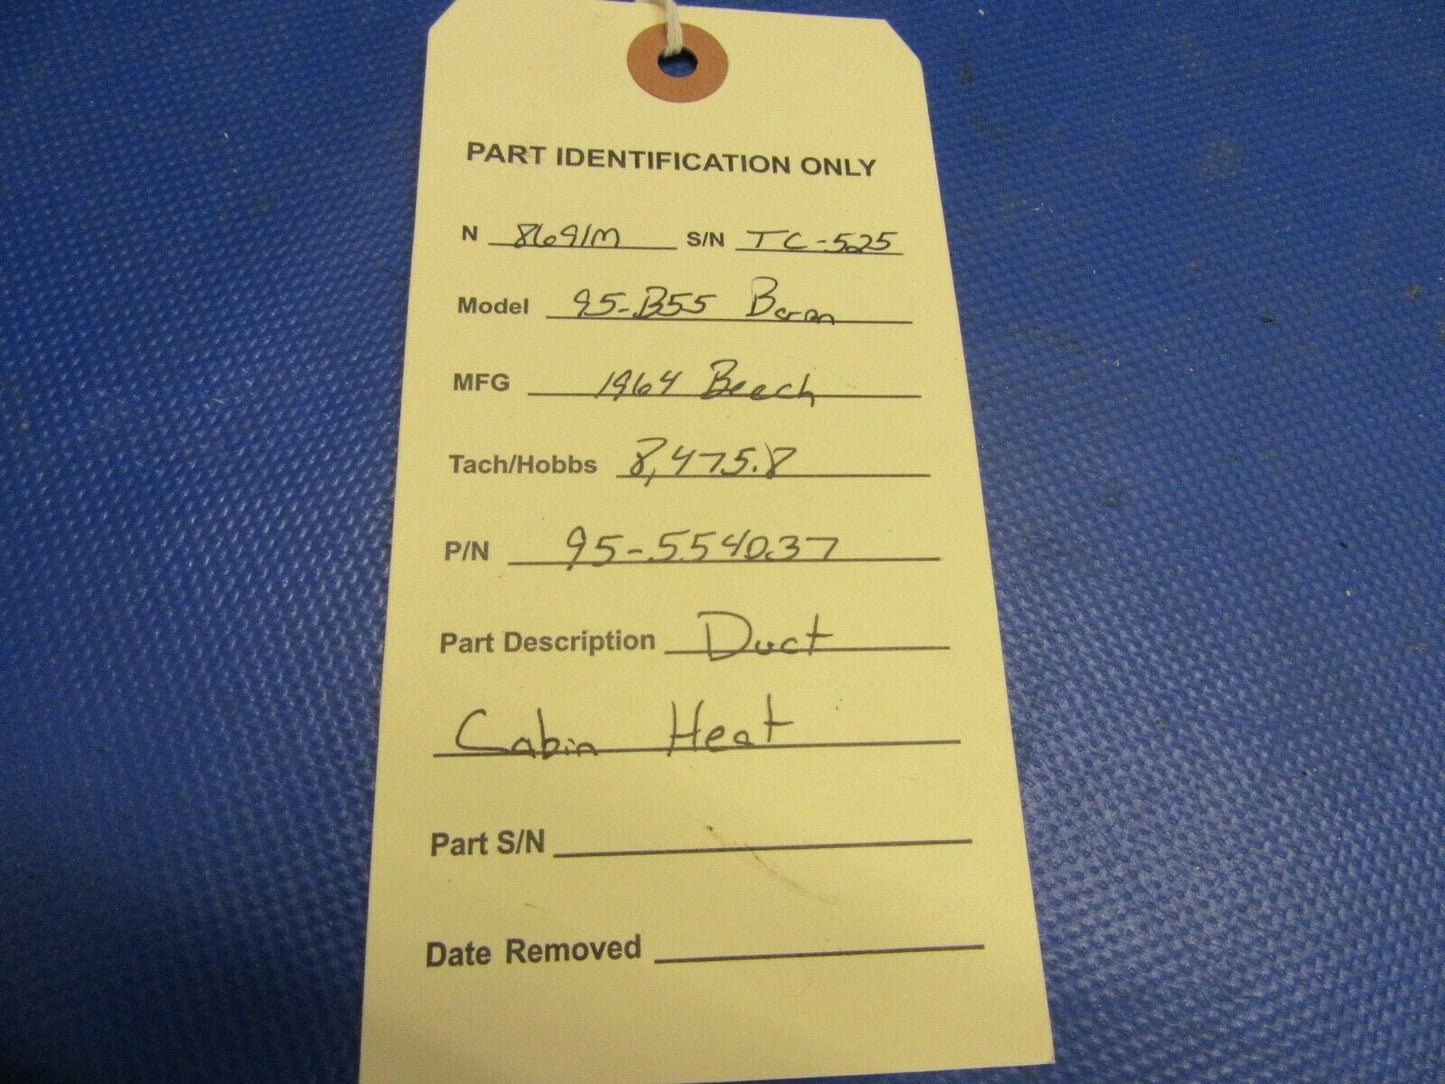 PART IDENTIFICATION ONLY
N 8691M S/N TC-525
Model 95-B55 Baron
MFG 1964 Beech
Tach/Hobbs 8,475.8
P/N 95-554037
Part Description Duct
Cabin Heat
Part S/N
Date Removed